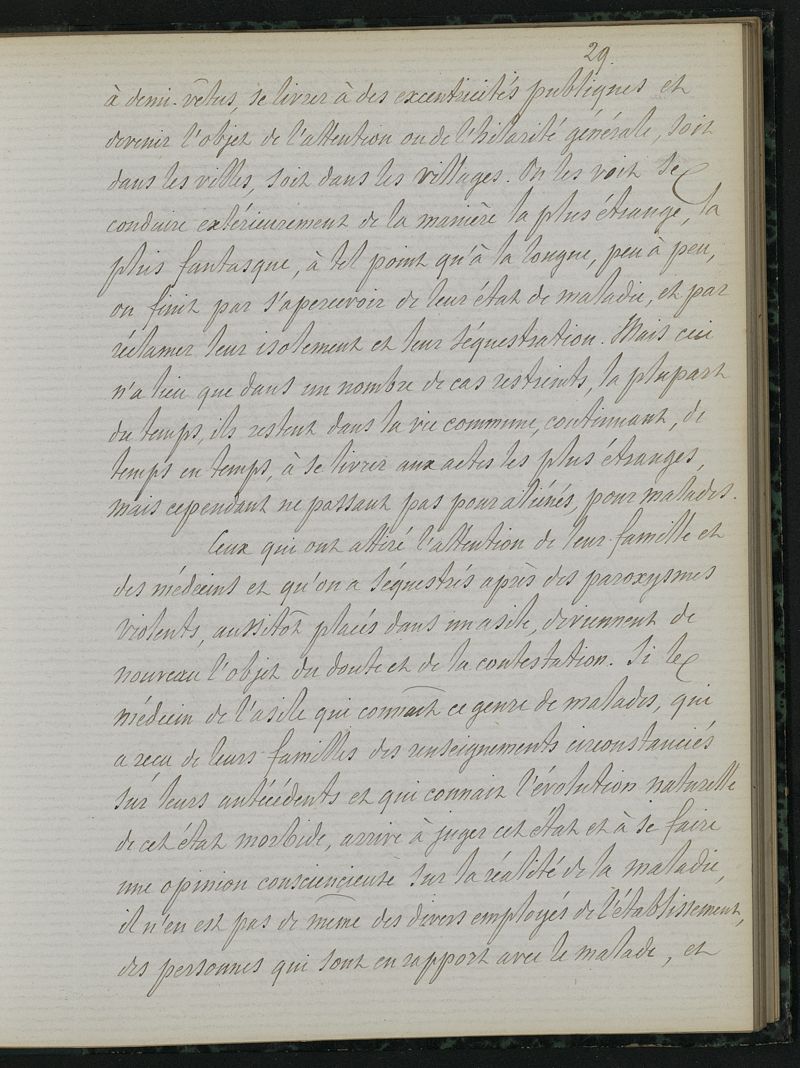 29.
à demi-vêtus, se livrer à des excentricités publiques et
devenir l'objet de l'attention ou de l'hilarité générale, soit
dans les villes, soit dans les villages. On les voit se
conduire extérieurement de la manière la plus étrange, la
plus fantasque, à tel point qu'à la longue, peu à peu,
on finit par s'apercevoir de leur état de maladie, et par
réclamer leur isolement et leur séquestration. Mais ceci
n'a lieu que dans un nombre de cas restreints, la plupart
du temps, ils restent dans la vie commune, continuant, de
temps en temps, à se livrer aux actes les plus étranges,
mais cependant ne passant pas pour aliénés, pour malades.
Ceux qui ont attiré l'attention de leur famille et
des médecins et qu'on a séquestrés après des paroxysmes
violents, aussitôt placés dans un asile, deviennent de
nouveau l'objet du doute et de la contestation. Si le
médecin de l'asile qui connaît ce genre de malades, qui
a reçu de leurs familles des renseignements circonstanciés
sur leurs antécédents et qui connait l'évolution naturelle
de cet état morbide, arrive à juger cet état et à se faire
une opinion consciencieuse sur la réalité de la maladie,
il n'en est pas de même des divers employés de l'établissement,
des personnes qui sont en rapport avec le malade, et